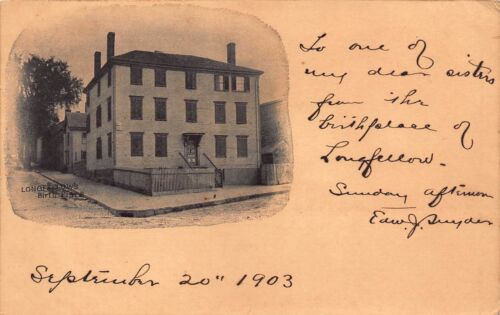 To one of
my dear sisters
from the
birthplace of
Longfellow.
Sunday afternoon
Edw. J. Snyder
LONGFELLOW'S
Birth Place
September 20" 1903